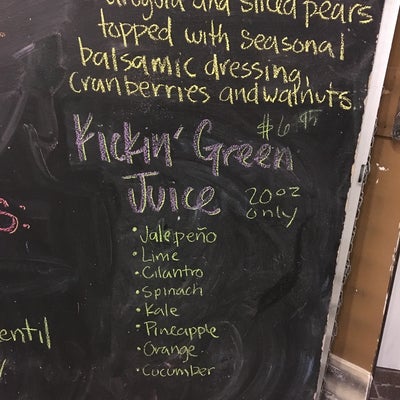 arugula and sliced pears
topped with seasonal
balsamic dressing,
cranberries and walnuts.
Kickin' Green $6
Juice 20oz
only
• Jalepeño
• Lime
• Cilantro
• Spinach
• Kale
• Pineapple
• Orange
• Cucumber
entil